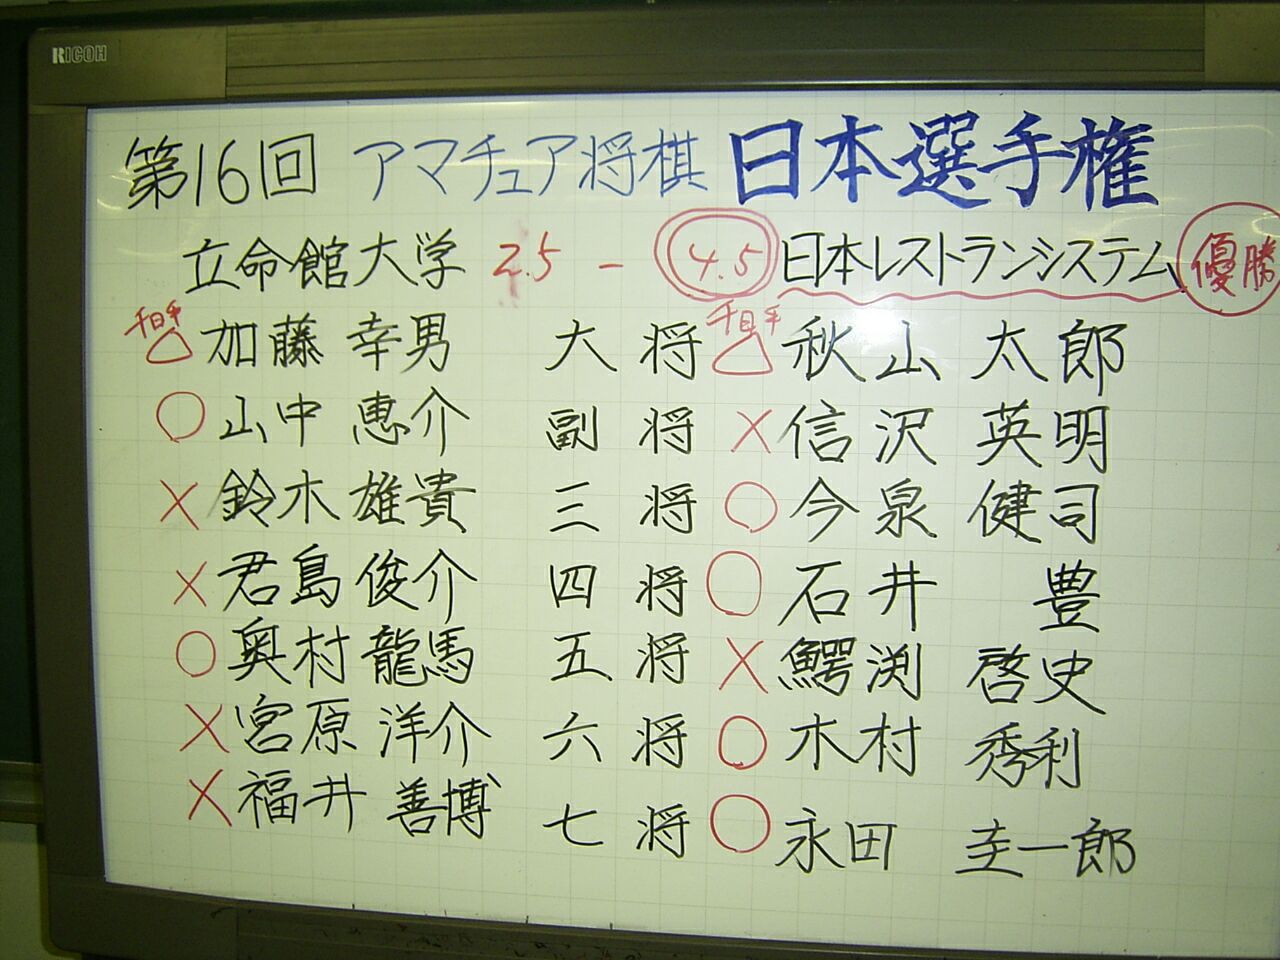 RICOH
第16回 アマチュア将棋 日本選手権
立命館大学 2.5 - 4.5 日本レストランシステム 優勝
千日手 千日手
△ 加藤 幸男 大将 △ 秋山 太郎
○ 山中 恵介 副将 × 信沢 英明
× 鈴木 雄貴 三将 ○ 今泉 健司
× 君島 俊介 四将 ○ 石井 豊
○ 奥村 龍馬 五将 × 鰐渕 啓史
× 宮原 洋介 六将 ○ 木村 秀利
× 福井 善博 七将 ○ 永田 圭一郎